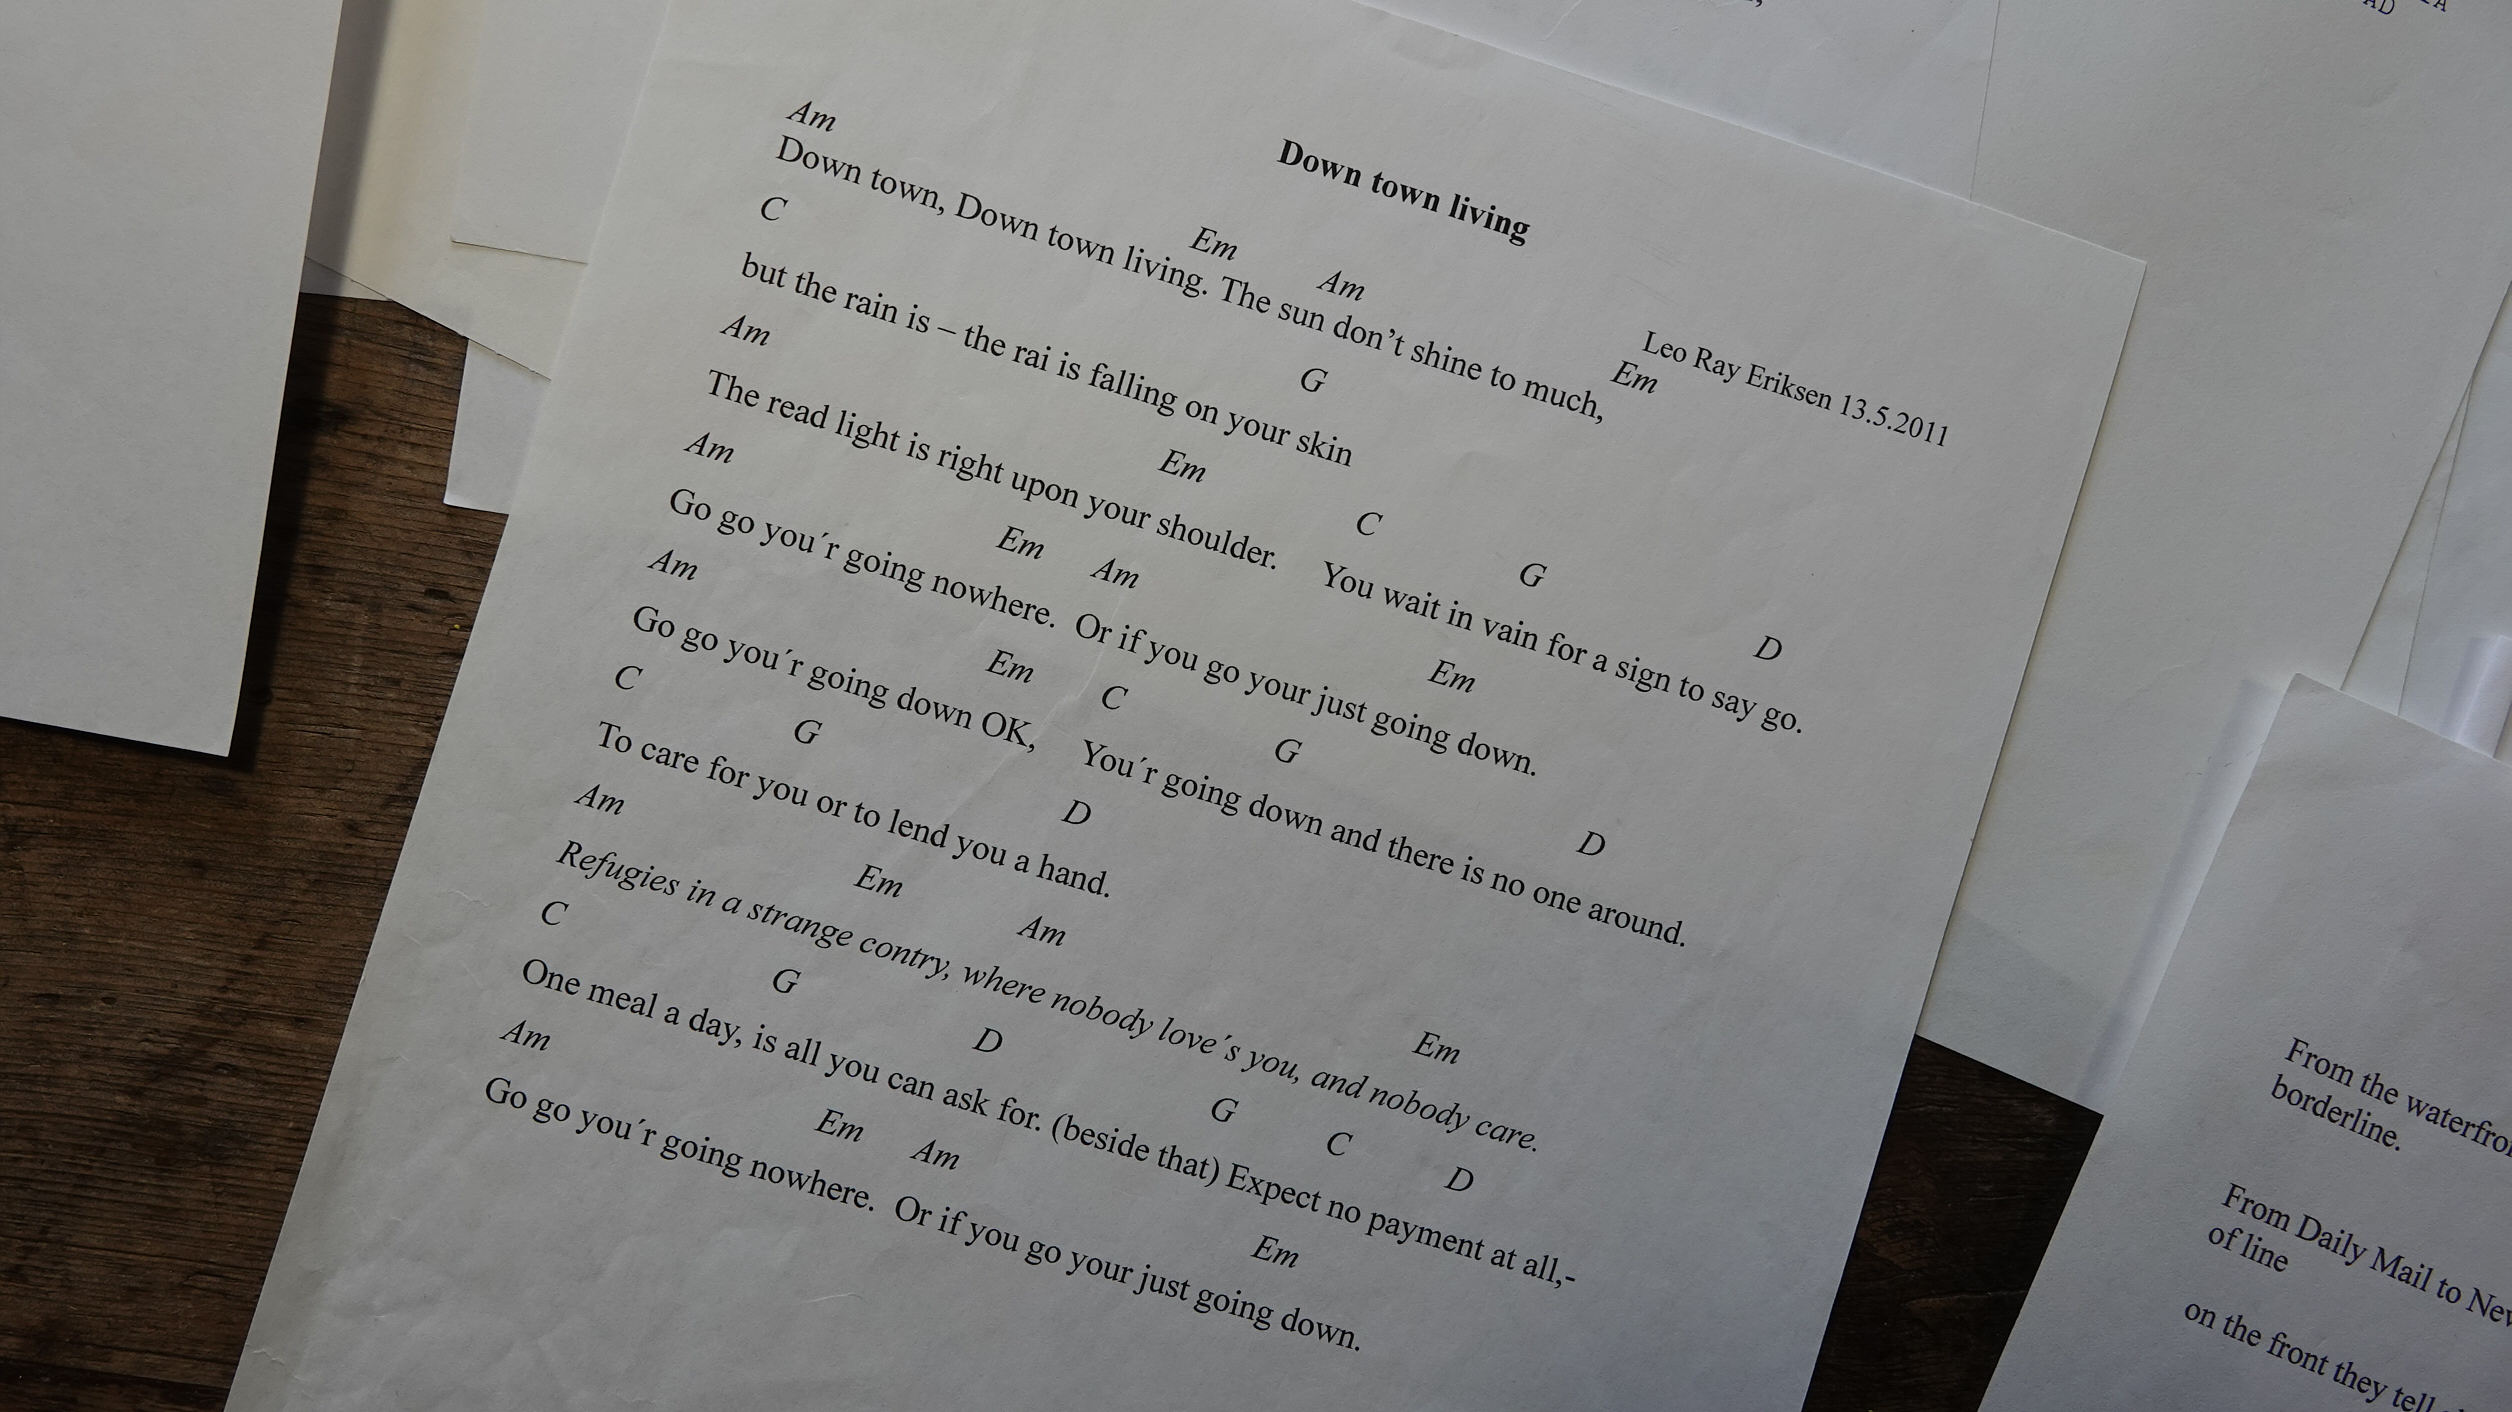 Down town living
Leo Ray Eriksen 13.5.2011
Am Em Am Em
Down town, Down town living. The sun don’t shine to much,
C G
but the rain is – the rai is falling on your skin
Am Em C G D
The read light is right upon your shoulder. You wait in vain for a sign to say go.
Am Em Am Em
Go go you´r going nowhere. Or if you go your just going down.
Am Em C G D
Go go you´r going down OK, You´r going down and there is no one around.
C G D
To care for you or to lend you a hand.
Am Em Am Em
Refugies in a strange contry, where nobody love´s you, and nobody care.
C G D G C D
One meal a day, is all you can ask for. (beside that) Expect no payment at all,-
Am Em Am Em
Go go you´r going nowhere. Or if you go your just going down.
AD
From the
borderline.
From Daily Mail to
of line
on the front they tell